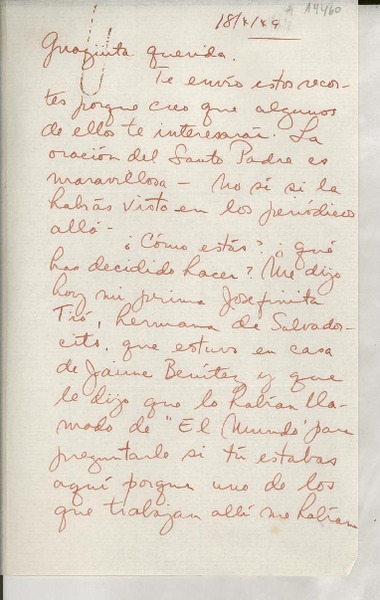 A 14460
18/X/49
querida.
Te envío estos recor-
tes porque creo que algunos
de ellos te interesarán. La
oración del Santo Padre es
maravillosa — no sé si la
habrás visto en los periódicos
allá -
¿Cómo estás? ¿qué
has decidido hacer? Me dijo
hoy mi prima Josefinita
Tió, hermana de Salvador-
cito, que estuvo en casa
de Jaime Benítez y que
le dijo que lo habían lla-
mado de "El Mundo" para
preguntarle si tú estabas
aquí porque uno de los
que trabajan allí me habían